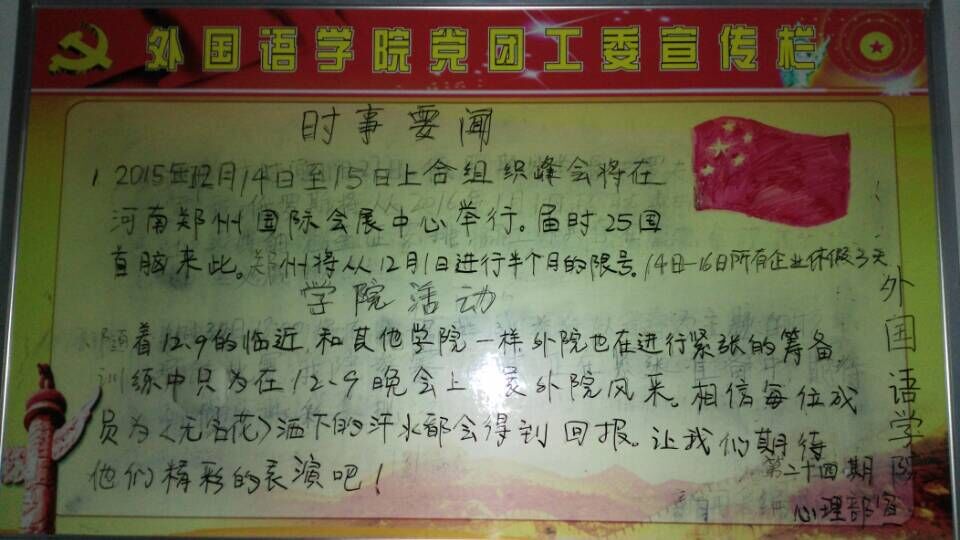 外国语学院党团工委宣传栏
时事要闻
1 2015年12月14日至15日上合组织峰会将在
河南郑州国际会展中心举行。届时25国
首脑来此。郑州将从12月1日进行半个月的限号。14日-16日所有企业休假3天
学院活动
随着12.9的临近,和其他学院一样外院也在进行紧张的筹备
训练中只为在12-9晚会上一展外院风采。相信每位成
员为《无名花》洒下的汗水都会得到回报。让我们期待
他们精彩的表演吧!
第二十四期
心理部宣
外国语学院